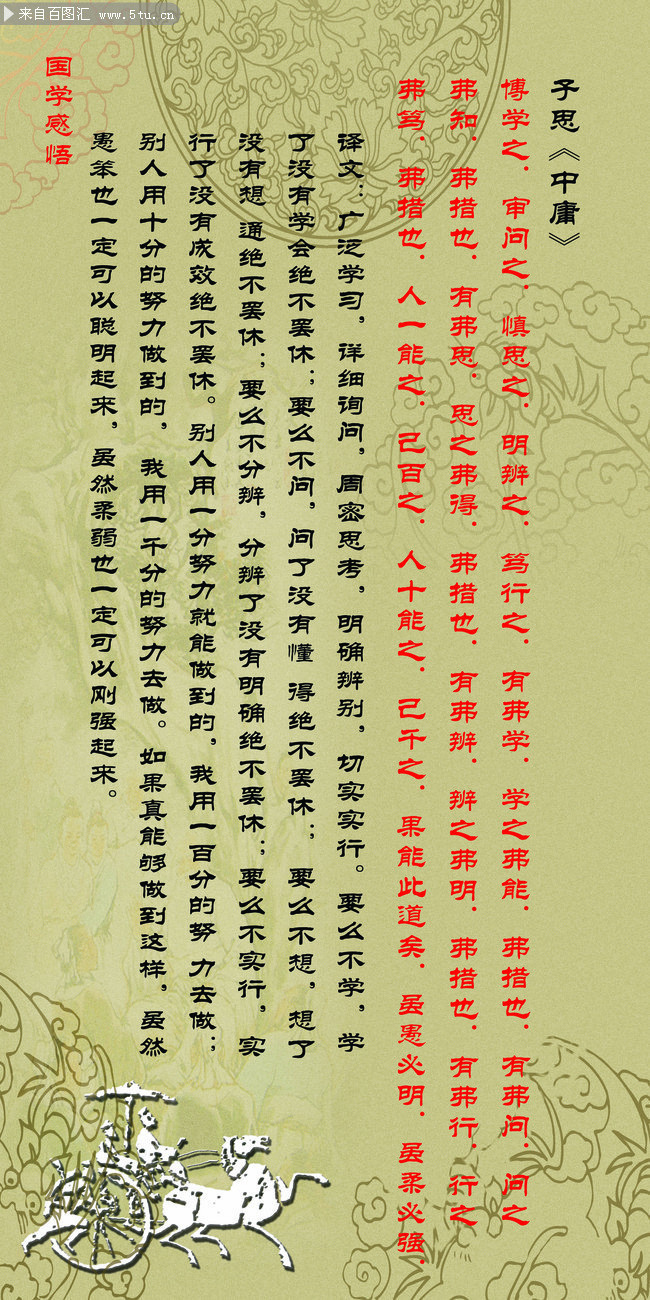 来自百图汇 www.5tu.cn
子思《中庸》
博学之．审问之．慎思之．明辨之．笃行之．有弗学．学之弗能．弗措也．有弗问．问之
弗知．弗措也．有弗思．思之弗得．弗措也．有弗辨．辨之弗明．弗措也．有弗行．行之
弗笃．弗措也．人一能之．己百之．人十能之．己千之．果能此道矣．虽愚必明．虽柔必强．
译文：广泛学习，详细询问，周密思考，明确辨别，切实实行。要么不学，学
了没有学会绝不罢休；要么不问，问了没有懂 得绝不罢休；要么不想，想了
没有想 通绝不罢休；要么不分辨，分辨了没有明确绝不罢休；要么不实行，实
行了没有成效绝不罢休。别人用一分努力就能做到的，我用一百分的努 力去做；
别人用十分的努力做到的，我用一千分的努力去做。如果真能够做到这样，虽然
愚笨也一定可以聪明起来，虽然柔弱也一定可以刚强起来。
国学感悟